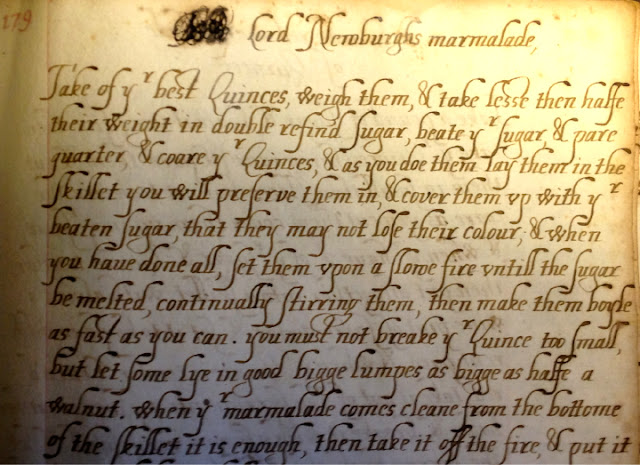 179
Lord Newburghs marmalade,
Take of yr best Quinces, weigh them, & take lesse then halfe
their weight in double refind sugar, beate yr sugar, & pare
quarter, & coare yr Quinces, & as you doe them lay them in the
skillet you will preserve them in, & cover them vp with yr
beaten sugar, that they may not lose their colour, & when
you haue done all, set them vpon a slowe fire vntill the sugar
be melted, continually stirring them, then make them boyle
as fast as you can. you must not breake yr Quince too small,
but let some lye in good bigge lumpes as bigge as halfe a
walnut. when yr marmalade comes cleane from the bottome
of the skillet it is enough, then take it off the fire, & put it